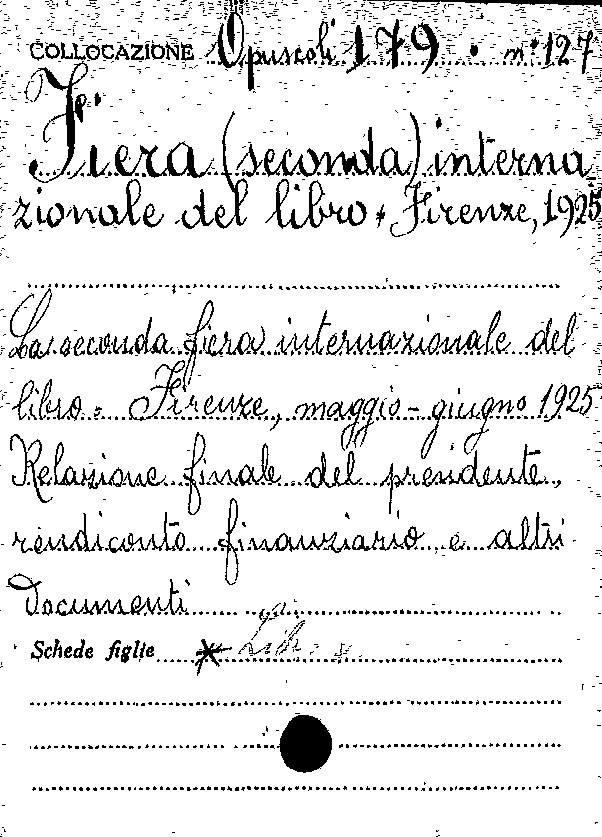 COLLOCAZIONE Opuscoli 179. n: 127
Fiera (seconda) interna
zionale del libro, Firenze, 1925
La seconda fiera internazionale del
libro. Firenze, maggio - giugno 1925
Relazione finale del presidente,
rendiconto finanziario e altri
documenti
Schede figlie